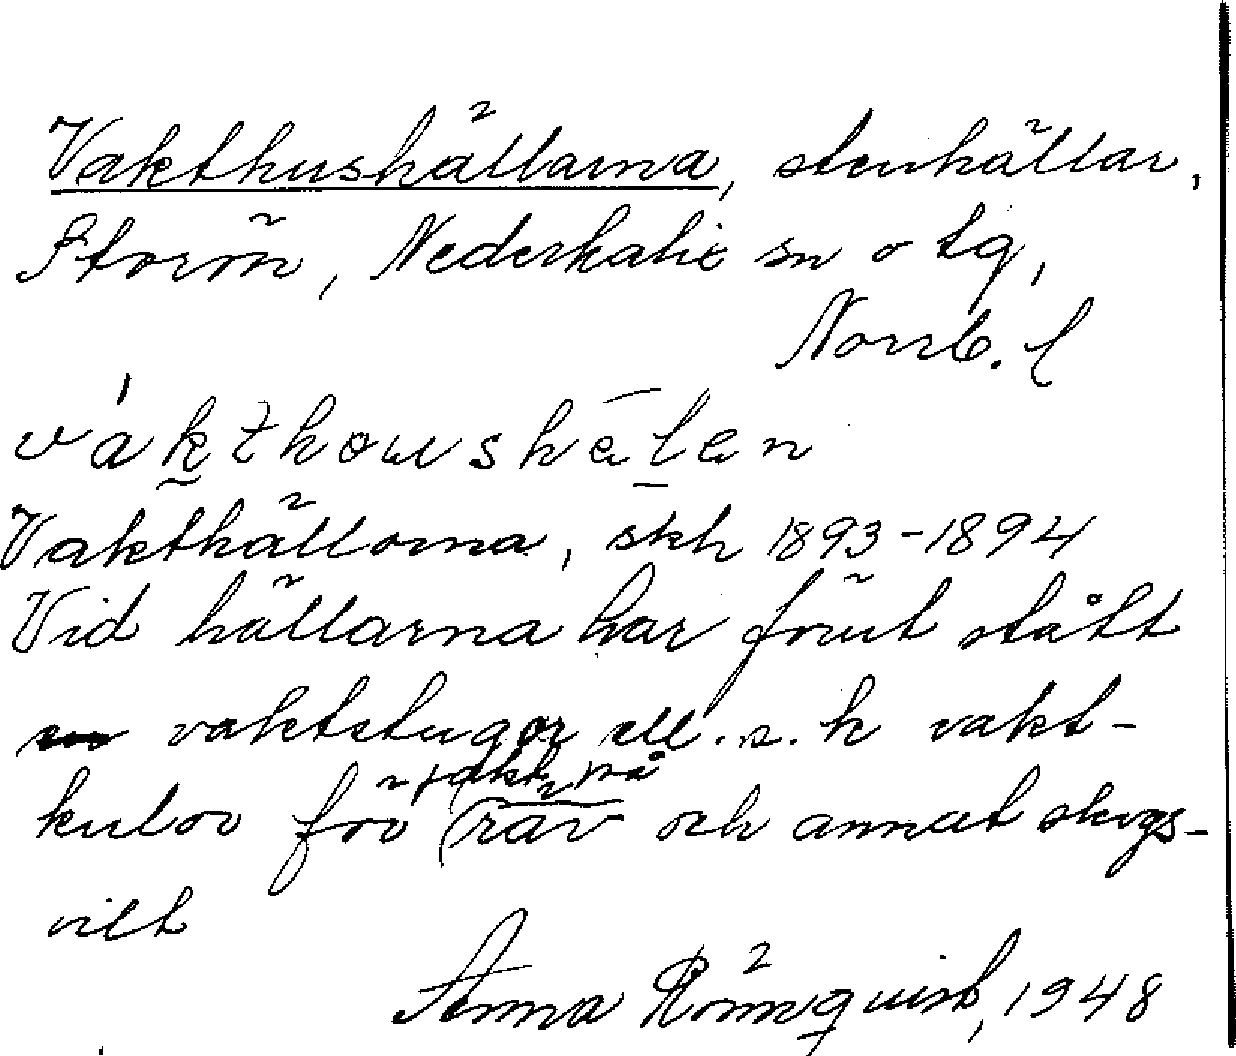 Vakthushällarna, stenhällar,
Storön, Nederkalix sn o tg,
Norrb. l
vákthowshēlen
Vakthällorna, skh 1893-1894
Vid hällarna har förut stått
vaktstugor ell. s. k vakt-
kulor för vakt på räv och annat skogs-
vilt
Anna Rönnquist, 1948